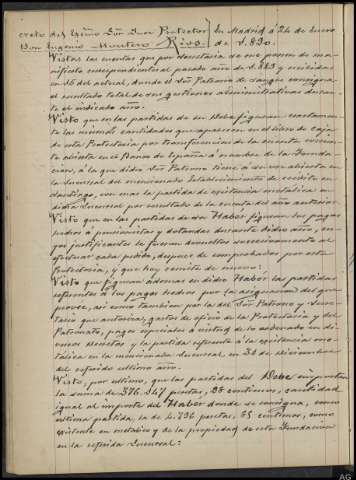 creto del Exmo Sor Juez Protector
Don Eugenio Montero Ríos.
En Madrid á 24 de Enero
de 1.890.
Vistas las cuentas que por Secretaría se me ponen de ma-
nifiesto correspondientes al pasado año de 1.889 y recibidas
en 16 del actual, donde el Sor Patrono de sangre consigna
el resultado total de sus gestiones administrativas duran-
te el indicado año.
Visto que en las partidas de su Debe figuran exactamen-
te las mismas cantidades que aparecen en el libro de caja
de esta Protectoría por transferencias de la cuenta corrien-
te abierta en el Banco de España á nombre de la Funda-
cion, á la que dicho Sor Patrono tiene á su vez abierta en
la Sucursal del mencionado Establecimiento de credito en
Santiago, con mas la partida de existencia metálica en
dicha Sucursal por resultado de la cuenta del año anterior.
Visto que en las partidas de su Haber figuran los pagos
hechos á pensionistas y dotandas durante dicho año, cu-
yos justificantes le fueron devueltos sucesivamente al
efectuar cada pedido, despues de comprobados por esta
Protectoría, y que hoy remite de nuevo:
Visto que figuran ademas en dicho Haber las partidas
referentes á los pagos hechos por la asignacion del que
provee, así como tambien por la del Sor Patrono y Secre-
tario que autoriza, gastos de oficio de la Protectoría y del
Patronato, pagos especiales á virtud de lo ordenado en di-
versos decretos y la partida referente á la existencia me-
tálica en la mencionada Sucursal en 31 de Diciembre
del referido último año.
Visto, por último, que las partidas del Debe importan
la suma de 376.267 pesetas, 98 centimos, cantidad
igual al importe del Haber donde se consigna, como
última partida la de 4.796 pesetas, 65 centimos, como
existente en metálico y de la propiedad de esta Fundacion
en la referida Sucursal:
AG